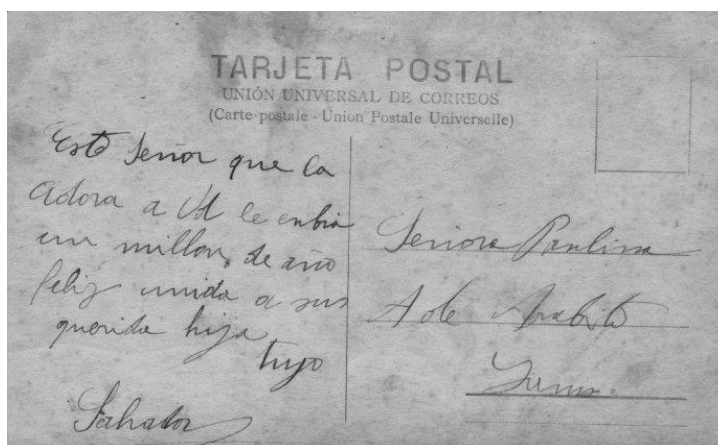 TARJETA POSTAL
UNIÓN UNIVERSAL DE CORREOS
(Carte postale - Union Postale Universelle)
Este Señor que la
adora a Ud le enbia
un millon de año
feliz unida a sus
querida hija
tuyo
Salvador
Señora Paulina
A de